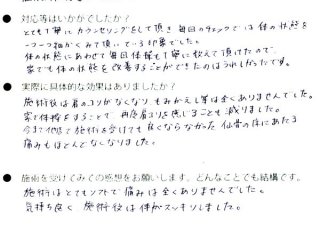 ●対応等はいかがでしたか？
とても丁寧にカウンセリングをして頂き毎回のチェックでは体の状態を
一つ一つ細かくみて頂いている印象でした。
体の状態にあわせて毎回体操も丁寧に教えて頂けたので、
家でも体の状態を改善することができたのはうれしかったです。
●実際に具体的な効果はありましたか？
施術後は肩のコリがなくなり、もみかえし等は全くありませんでした。
家で体操をすることで再度肩コリを感じることも減りました。
今まで他で施術を受けても良くならなかった仙骨の付にあたる
痛みもほとんどなくなりました。
●施術を受けてみての感想をお願いします、どんなことでも結構です。
施術はとてもソフトで痛みは全くありませんでした。
気持ち良く施術後は体がスッキリしました。